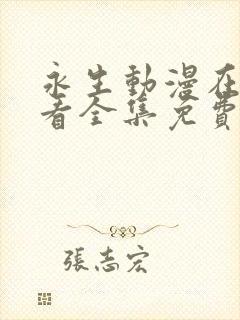 永生動漫在
看全集免費
張志宏